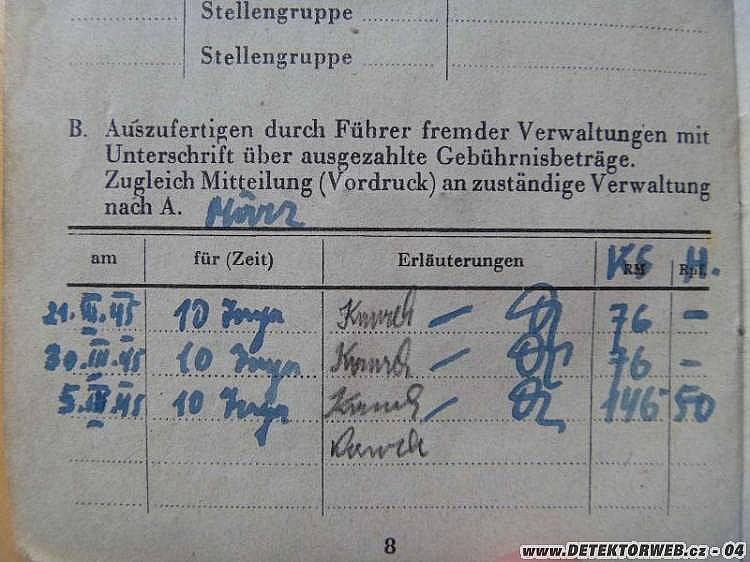 Stellengruppe
Stellengruppe
B. Auszufertigen durch Führer fremder Verwaltungen mit
Unterschrift über ausgezahlte Gebührnisbeträge.
Zugleich Mitteilung (Vordruck) an zuständige Verwaltung
nach A. März
am für (Zeit) Erläuterungen KS RM H. Rpf.
21.III.45 10 Tage – 76 –
30.III.45 10 Tage – 76 –
5. .45 10 Tage – 146 50
8
www.DETEKTORWEB.cz - 04